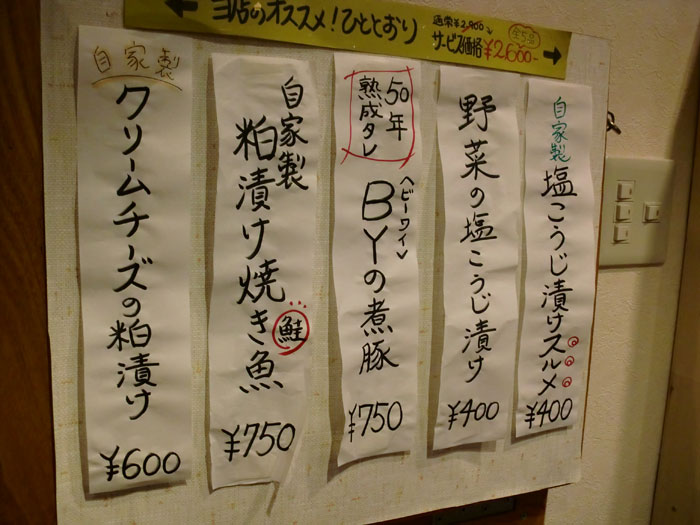 当店のオススメ！ひととおり
通常¥2,900
全5品
サービス価格¥2,600-
自家製
塩こうじ漬けスルメ
¥400
野菜の塩こうじ漬け
¥400
50年
熟成タレ
ヘビーワイ
BYの煮豚
¥750
自家製
粕漬け焼き魚
鮭
¥750
自家製
クリームチーズの粕漬け
¥600